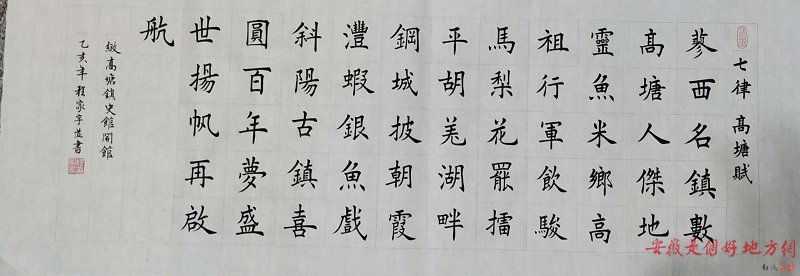 七律 高塘賦
蓼西名鎮數
高塘人傑地
靈魚米鄉高
祖行軍飲駿
馬梨花罷擂
平胡羌湖畔
鋼城披朝霞
灃蝦銀魚戲
斜陽古鎮喜
圓百年夢盛
世揚帆再啟
航
緻高塘鎮史館開館
乙亥年程家宇並書
安徽是個好地方網